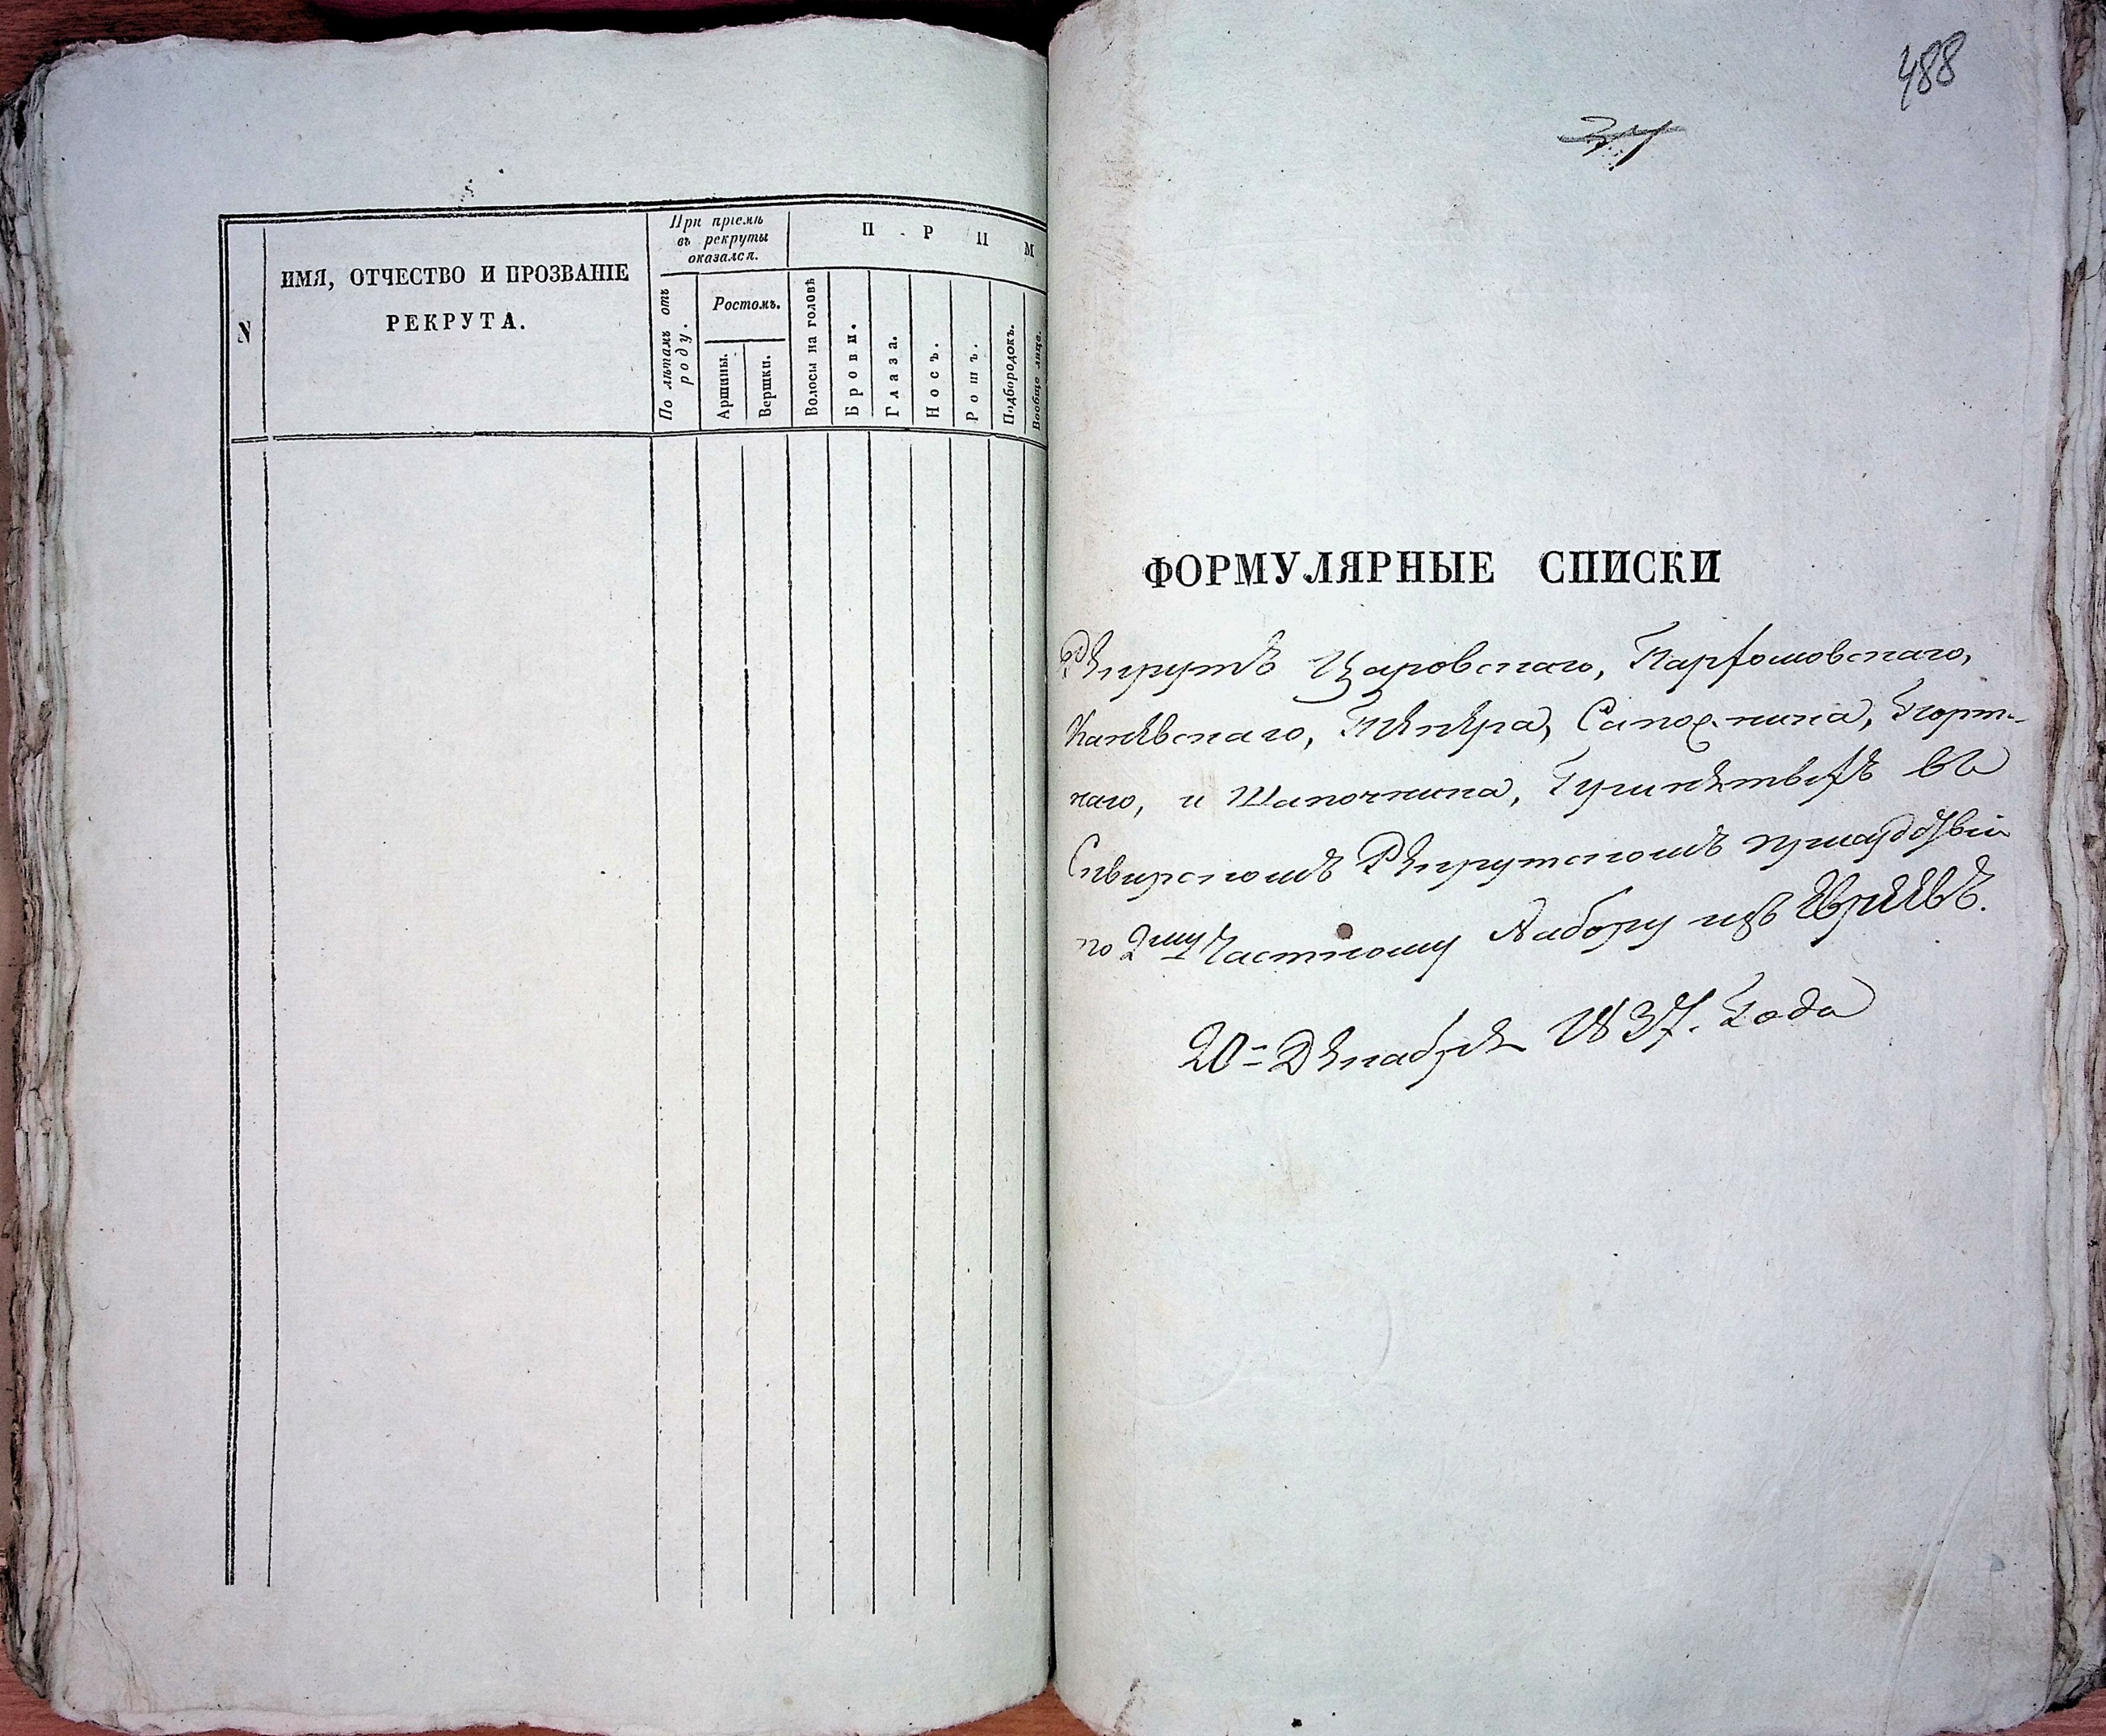 N
ИМЯ, ОТЧЕСТВО И ПРОЗВАНІЕ
РЕКРУТА.
При пріемѣ
въ рекруты
оказался.
По лѣтамъ отъ
роду.
Ростомъ.
Аршины.
Вершки.
П Р И М
Волосы на головѣ
Брови.
Глаза.
Носъ.
Ротъ.
Подбородокъ.
Вообще лице.
488
ФОРМУЛЯРНЫЕ СПИСКИ
Рекрутъ Царовскаго, Парфомовскаго,
Каневскаго, Пекера, Сапожника, Порт-
наго, и Шапочника, въ
Сквирскомъ Рекрутскомъ присудствіи
по 2му Частному Набору изъ Евреевъ.
20 = Декабря 1837. Года